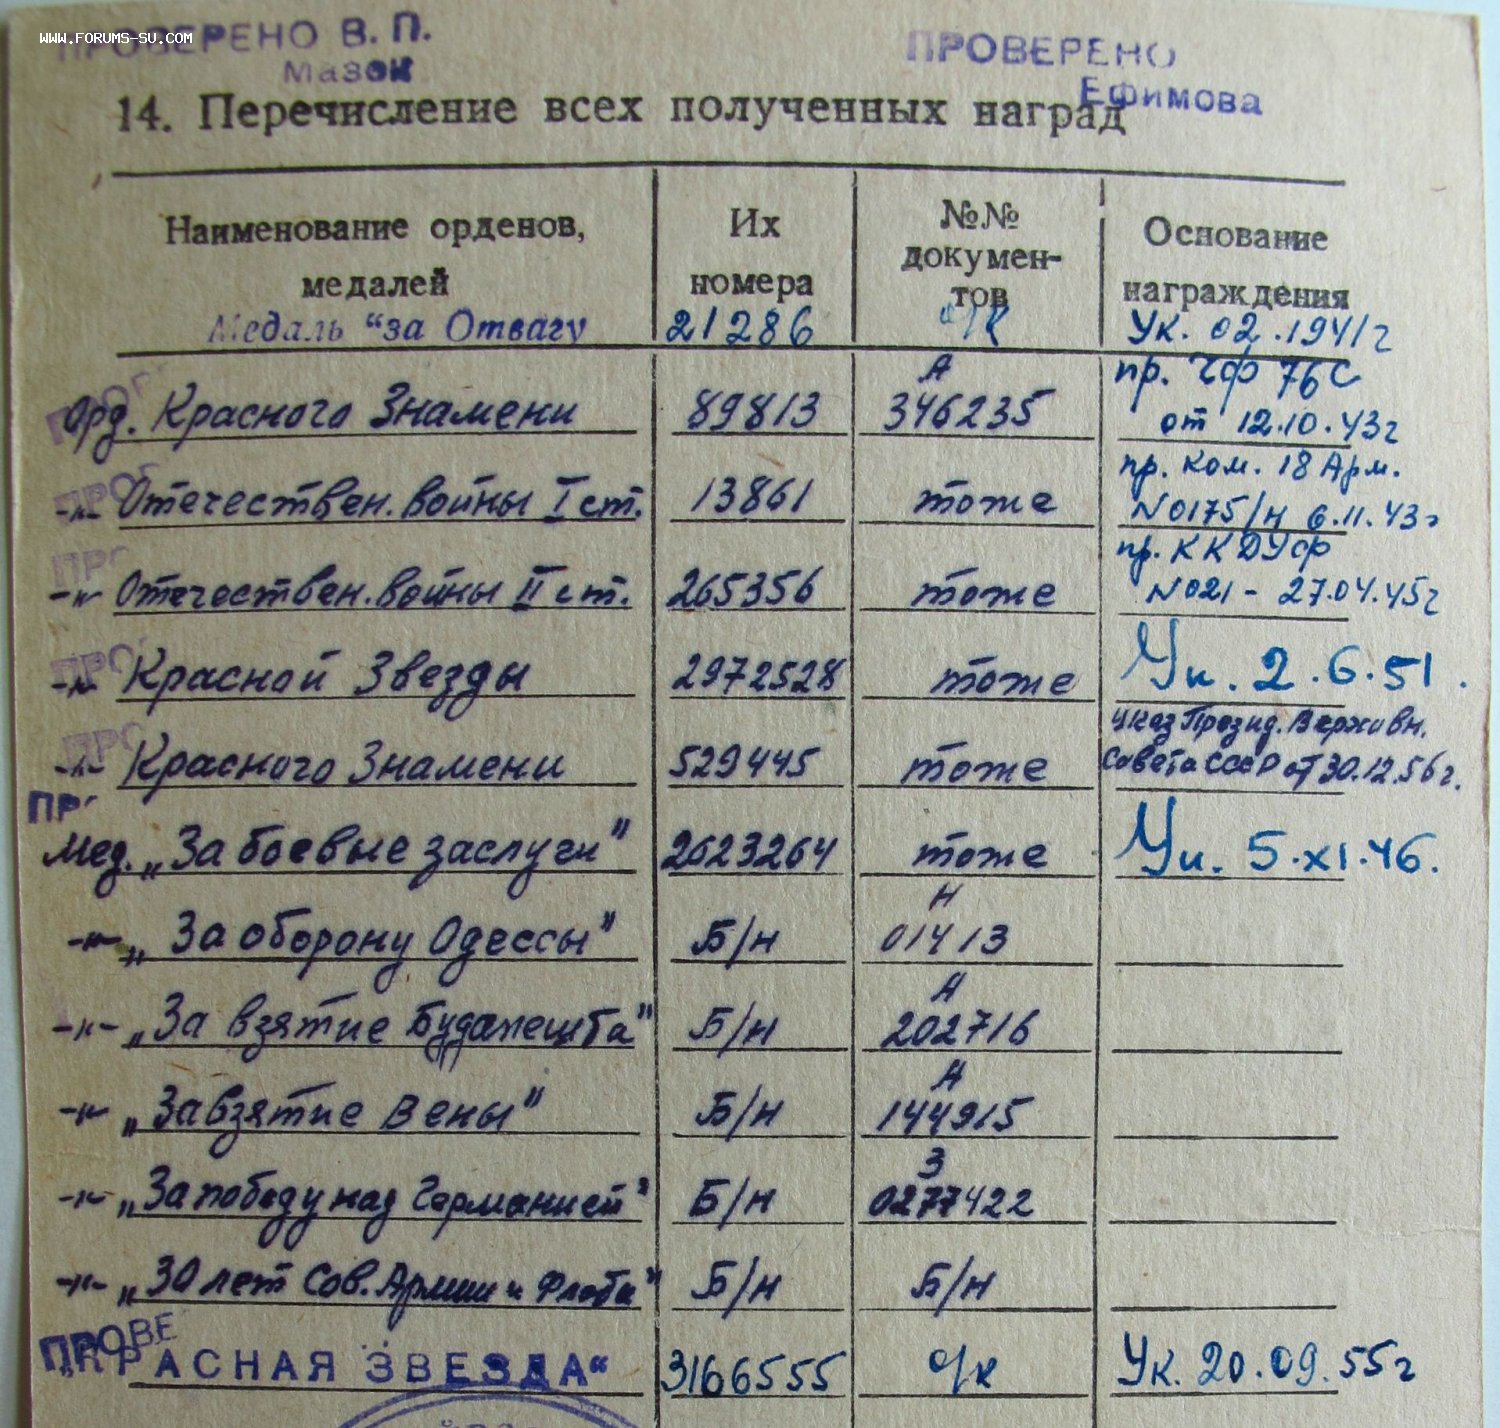 WWW.FORUMS-SU.COM
ПРОВЕРЕНО В. П.
Мазок
ПРОВЕРЕНО
Ефимова
14. Перечисление всех полученных наград
Наименование орденов, медалей
Их номера
№№ докумен-
тов
Основание награждения
Медаль "за Отвагу 21286 о/к Ук. 02.1941г
Орд. Красного Знамени 89813 А 346235 пр. ЧФ 76с
от 12.10.43г
-"- Отечествен. войны I ст. 13861 тоже пр. ком. 18 Арм.
N0175/н 6.11.43г
-"- Отечествен. войны II ст. 265356 тоже пр. ККДУФ
N021 - 27.04.45г
-"- Красной Звезды 2972528 тоже Ук. 2.6.51.
-"- Красного Знамени 529445 тоже указ Презид. Верховн.
Совета СССР от 30.12.56г.
Мед. „За боевые заслуги" 2623264 тоже Ук. 5.XI.46.
-"- „За оборону Одессы" Б/н Н 01413
-"- „За взятие Будапешта" Б/н А 202716
-"- „За взятие Вены" Б/н А 144915
-"- „За победу над Германией" Б/н З 0277422
-"- „30 лет Сов. Армии и Флота" Б/н Б/н
ПРОВЕ
„КРАСНАЯ ЗВЕЗДА“ 3166555 о/к Ук. 20.09.55г